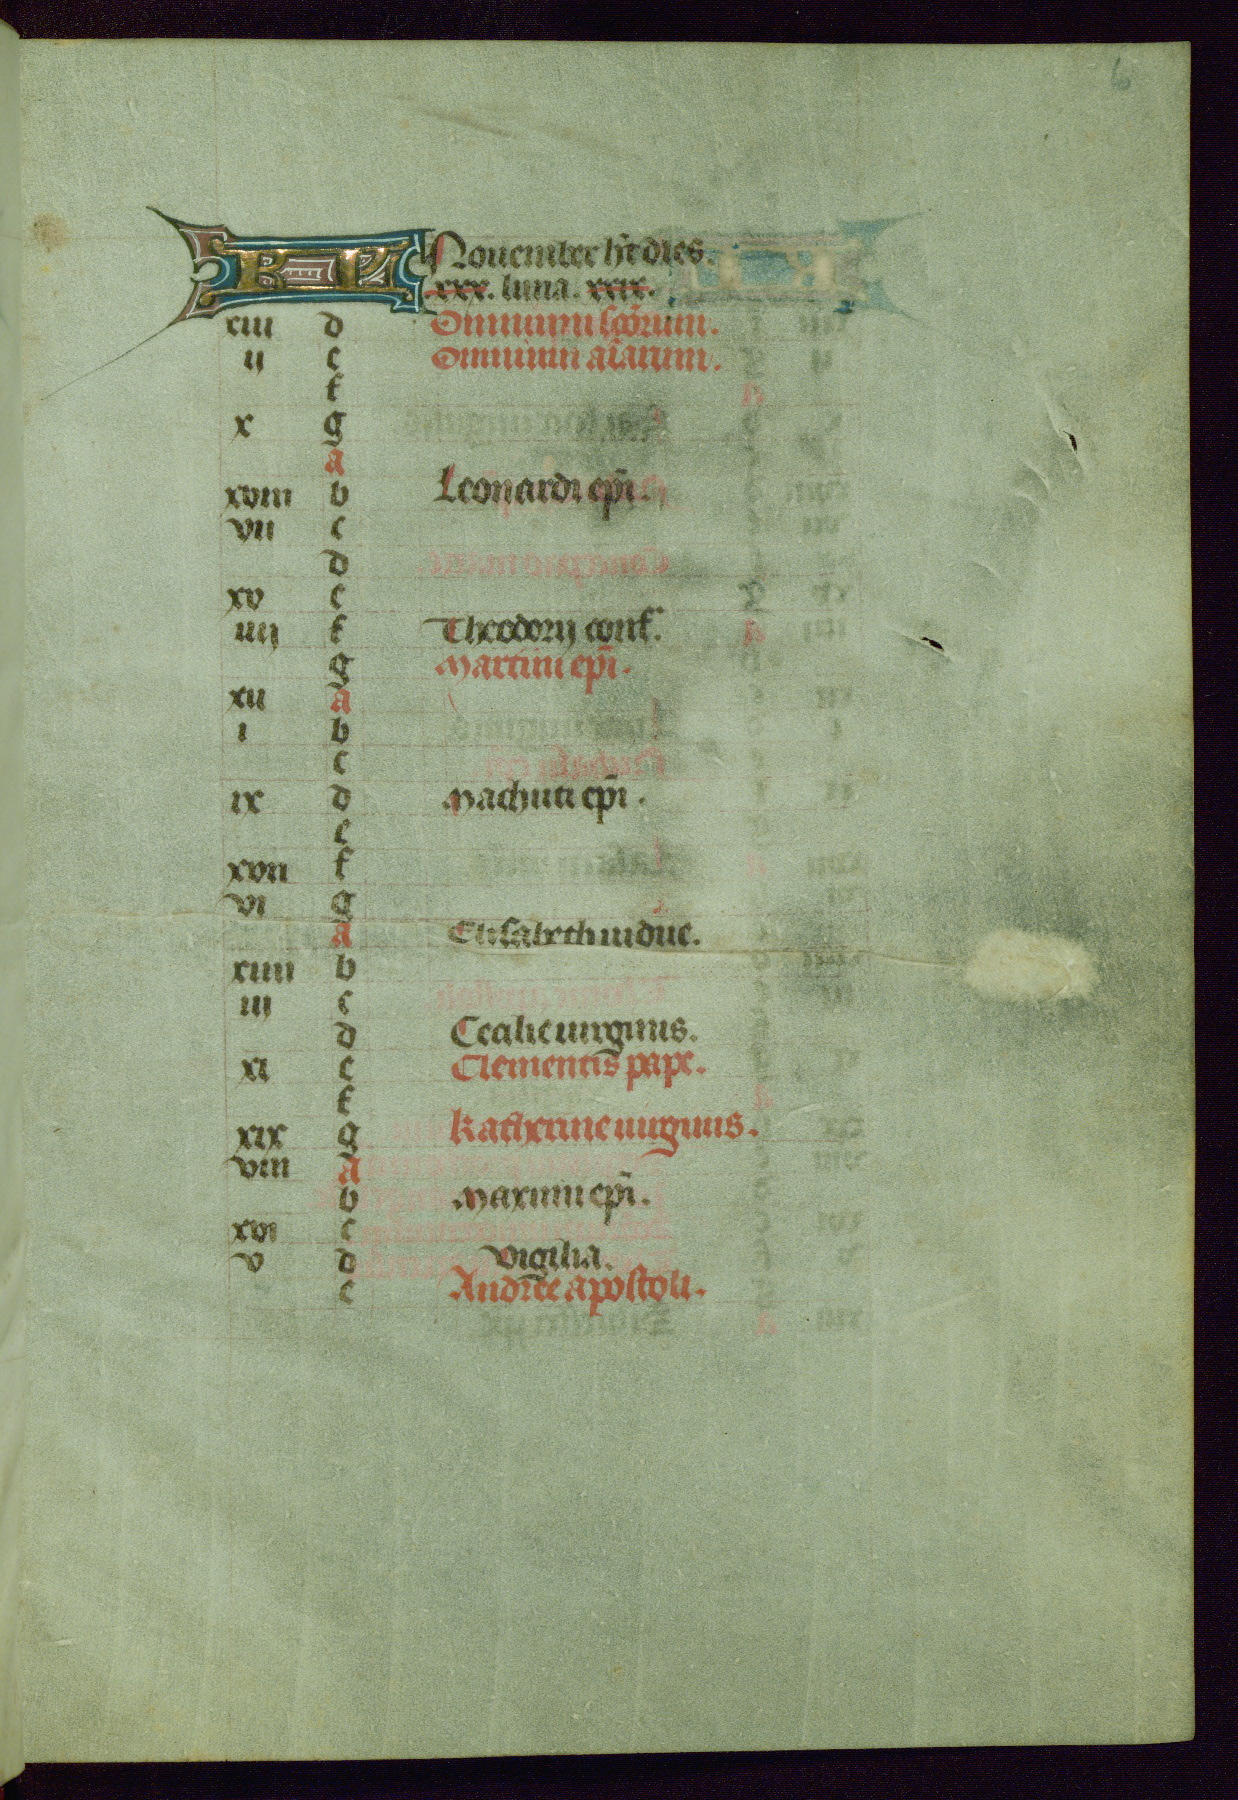 6
KL Nouember h̄t dies.
xxx. luna. xxix.
xiii d Omnium sc̄orum.
ii e Omnium aīarum.
f
x g
a
xviii b Leonardi ep̄i.
vii c
d
xv e
iiii f Theodorij conf.
g Martini ep̄i.
xii a
i b
c
ix d Machuti ep̄i.
e
xvii f
vi g
a Elisabeth uidue.
xiiii b
iii c
d Cecilie uirginis.
xi e Clementis pape.
f
xix g Katherine uirginis.
viii a
b Maximi ep̄i.
xvi c
v d vigilia.
e Andree apostoli.